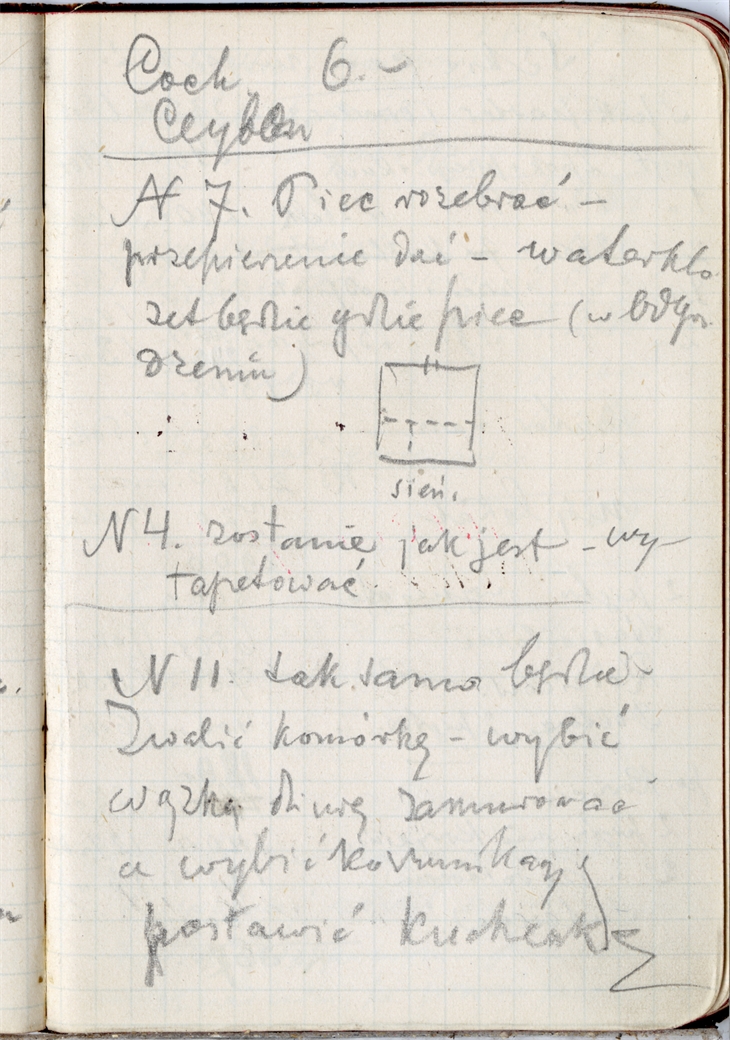 Coch 6.-
Ceylon
N 7. Piec rozebrać -
przepierzenie dać - waterklo
zet będzie gdzie piec (w
dzeniu)
sień.
N 4. zostanie jak jest - wy-
tapetować
N 11. tak samo będzie
Zwalić komórkę - wybić
wązką zamurować
a wybić komunikację
postawić kuchenkę